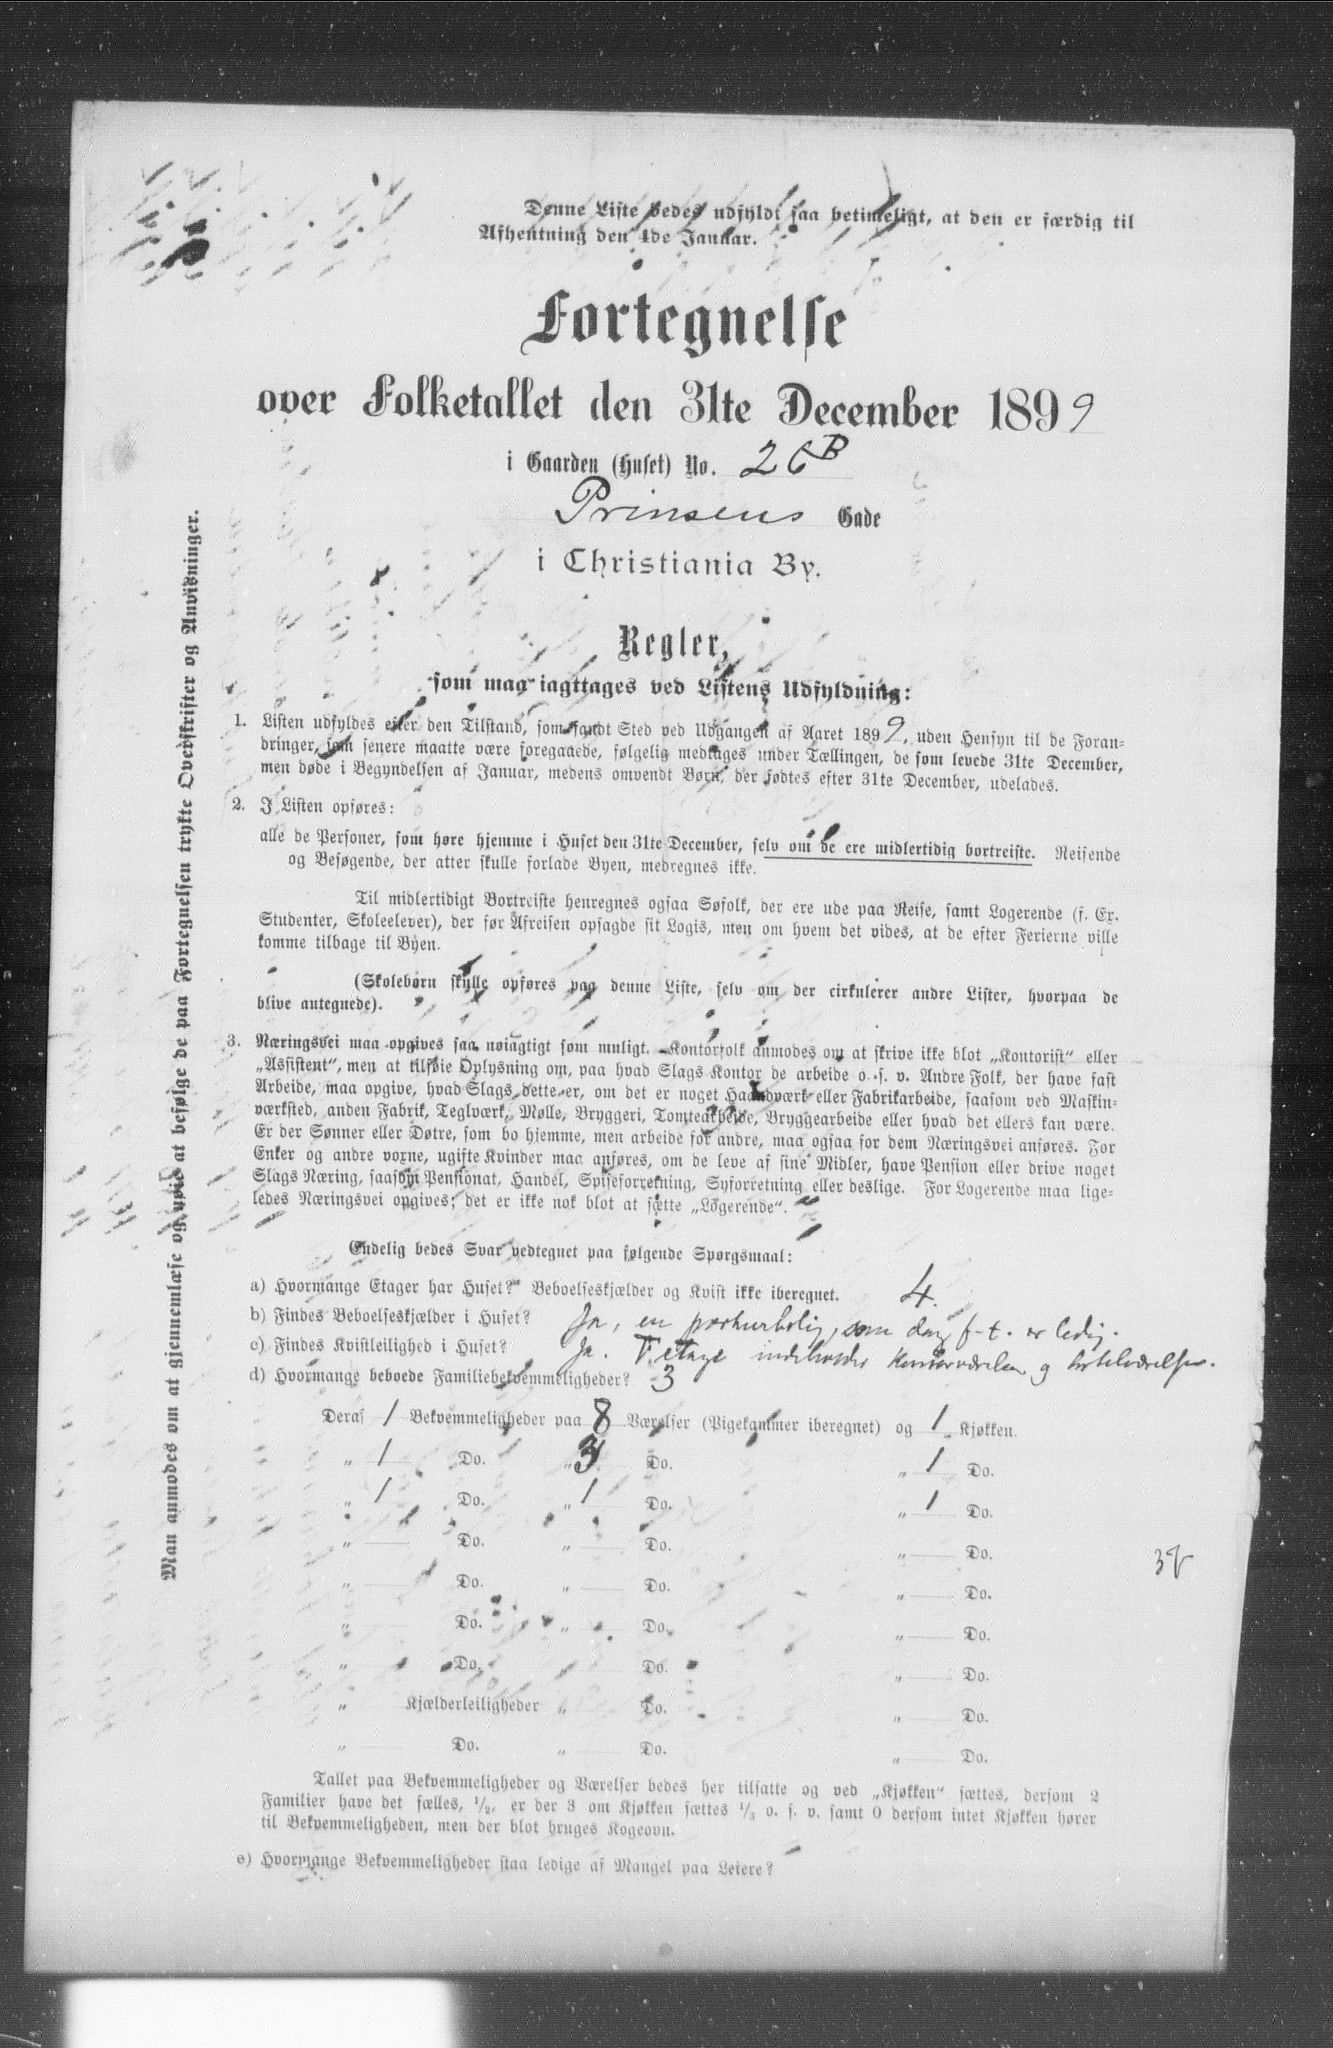 Denne Liste bedes udfyldt saa betimeligt, at den er færdig til
Afhentning den 4de Januar.
Fortegnelse
over Folketallet den 31te December 1899
i Gaarden (Huset) No. 26B
Prinsens Gade
i Christiania By.
Regler,
som maa iagttages ved Listens Udfyldning:
1. Listen udfyldes efter den Tilstand, som fandt Sted ved Udgangen af Aaret 1899, uden Hensyn til de Foran-
dringer, som senere maatte være foregaaede, følgelig medtages under Tællingen, de som levede 31te December,
men døde i Begyndelsen af Januar, medens omvendt Børn, der fødtes efter 31te December, udelades.
2. I Listen opføres:
alle de Personer, som høre hjemme i Huset den 31te December, selv om de ere midlertidig bortreiste. Reisende
og Besøgende, der atter skulle forlade Byen, medregnes ikke.
Til midlertidigt Bortreiste henregnes ogsaa Søfolk, der ere ude paa Reise, samt Logerende (f. Ex.
Studenter, Skoleelever), der før Afreisen opsagde sit Logis, men om hvem det vides, at de efter Ferierne ville
komme tilbage til Byen.
(Skolebørn skulle opføres paa denne Liste, selv om der cirkulerer andre Lister, hvorpaa de
blive antegnede).
3. Næringsvei maa opgives saa nøiagtigt som muligt. Kontorfolk anmodes om at skrive ikke blot „Kontorist“ eller
„Assistent“, men at tilføie Oplysning om, paa hvad Slags Kontor de arbeide o. s. v. Andre Folk, der have fast
Arbeide, maa opgive, hvad Slags dette er, om det er noget Haandværk eller Fabrikarbeide, saasom ved Maskin-
værksted, anden Fabrik, Teglværk, Mølle, Bryggeri, Tomtearbeide, Bryggearbeide eller hvad det ellers kan være.
Er der Sønner eller Døtre, som bo hjemme, men arbeide for andre, maa ogsaa for dem Næringsvei anføres. For
Enker og andre voxne, ugifte Kvinder maa anføres, om de leve af sine Midler, have Pension eller drive noget
Slags Næring, saasom Pensionat, Handel, Spiseforretning, Syforretning eller deslige. For Logerende maa lige-
ledes Næringsvei opgives; det er ikke nok blot at sætte „Logerende“.
Endelig bedes Svar vedtegnet paa følgende Spørgsmaal:
a) Hvormange Etager har Huset? Beboelseskjælder og Kvist ikke iberegnet. 4.
b) Findes Beboelseskjælder i Huset? Ja, en som f-t. er ledig.
c) Findes Kvistleilighed i Huset? Ja. etage indeholder og
d) Hvormange beboede Familiebekvemmeligheder? 3
Deraf 1 Bekvemmeligheder paa 8 Værelser (Pigekammer iberegnet) og 1 Kjøkken.
„ 1 Do. „ 3 Do. „ 1 Do.
„ 1 Do. „ 1 Do. „ 1 Do.
„ Do. „ Do. „ Do.
„ Do. „ Do. „ Do.
„ Do. „ Do. „ Do.
„ Do. „ Do. „ Do.
„ Kjælderleiligheder „ Do. „ Do.
„ Do. „ Do. „ Do.
Tallet paa Bekvemmeligheder og Værelser bedes her tilsatte og ved „Kjøkken“ sættes, dersom 2
Familier have det fælles, 1/2, er der 3 om Kjøkken sættes 1/3 o. s. v. samt 0 dersom intet Kjøkken hører
til Bekvemmeligheden, men der blot bruges Kogeovn.
e) Hvormange Bekvemmeligheder staa ledige af Mangel paa Leiere?
Man anmodes om at gjennemlæse og nøie at befølge de paa Fortegnelsen trykte Overskrifter og Anvisninger.